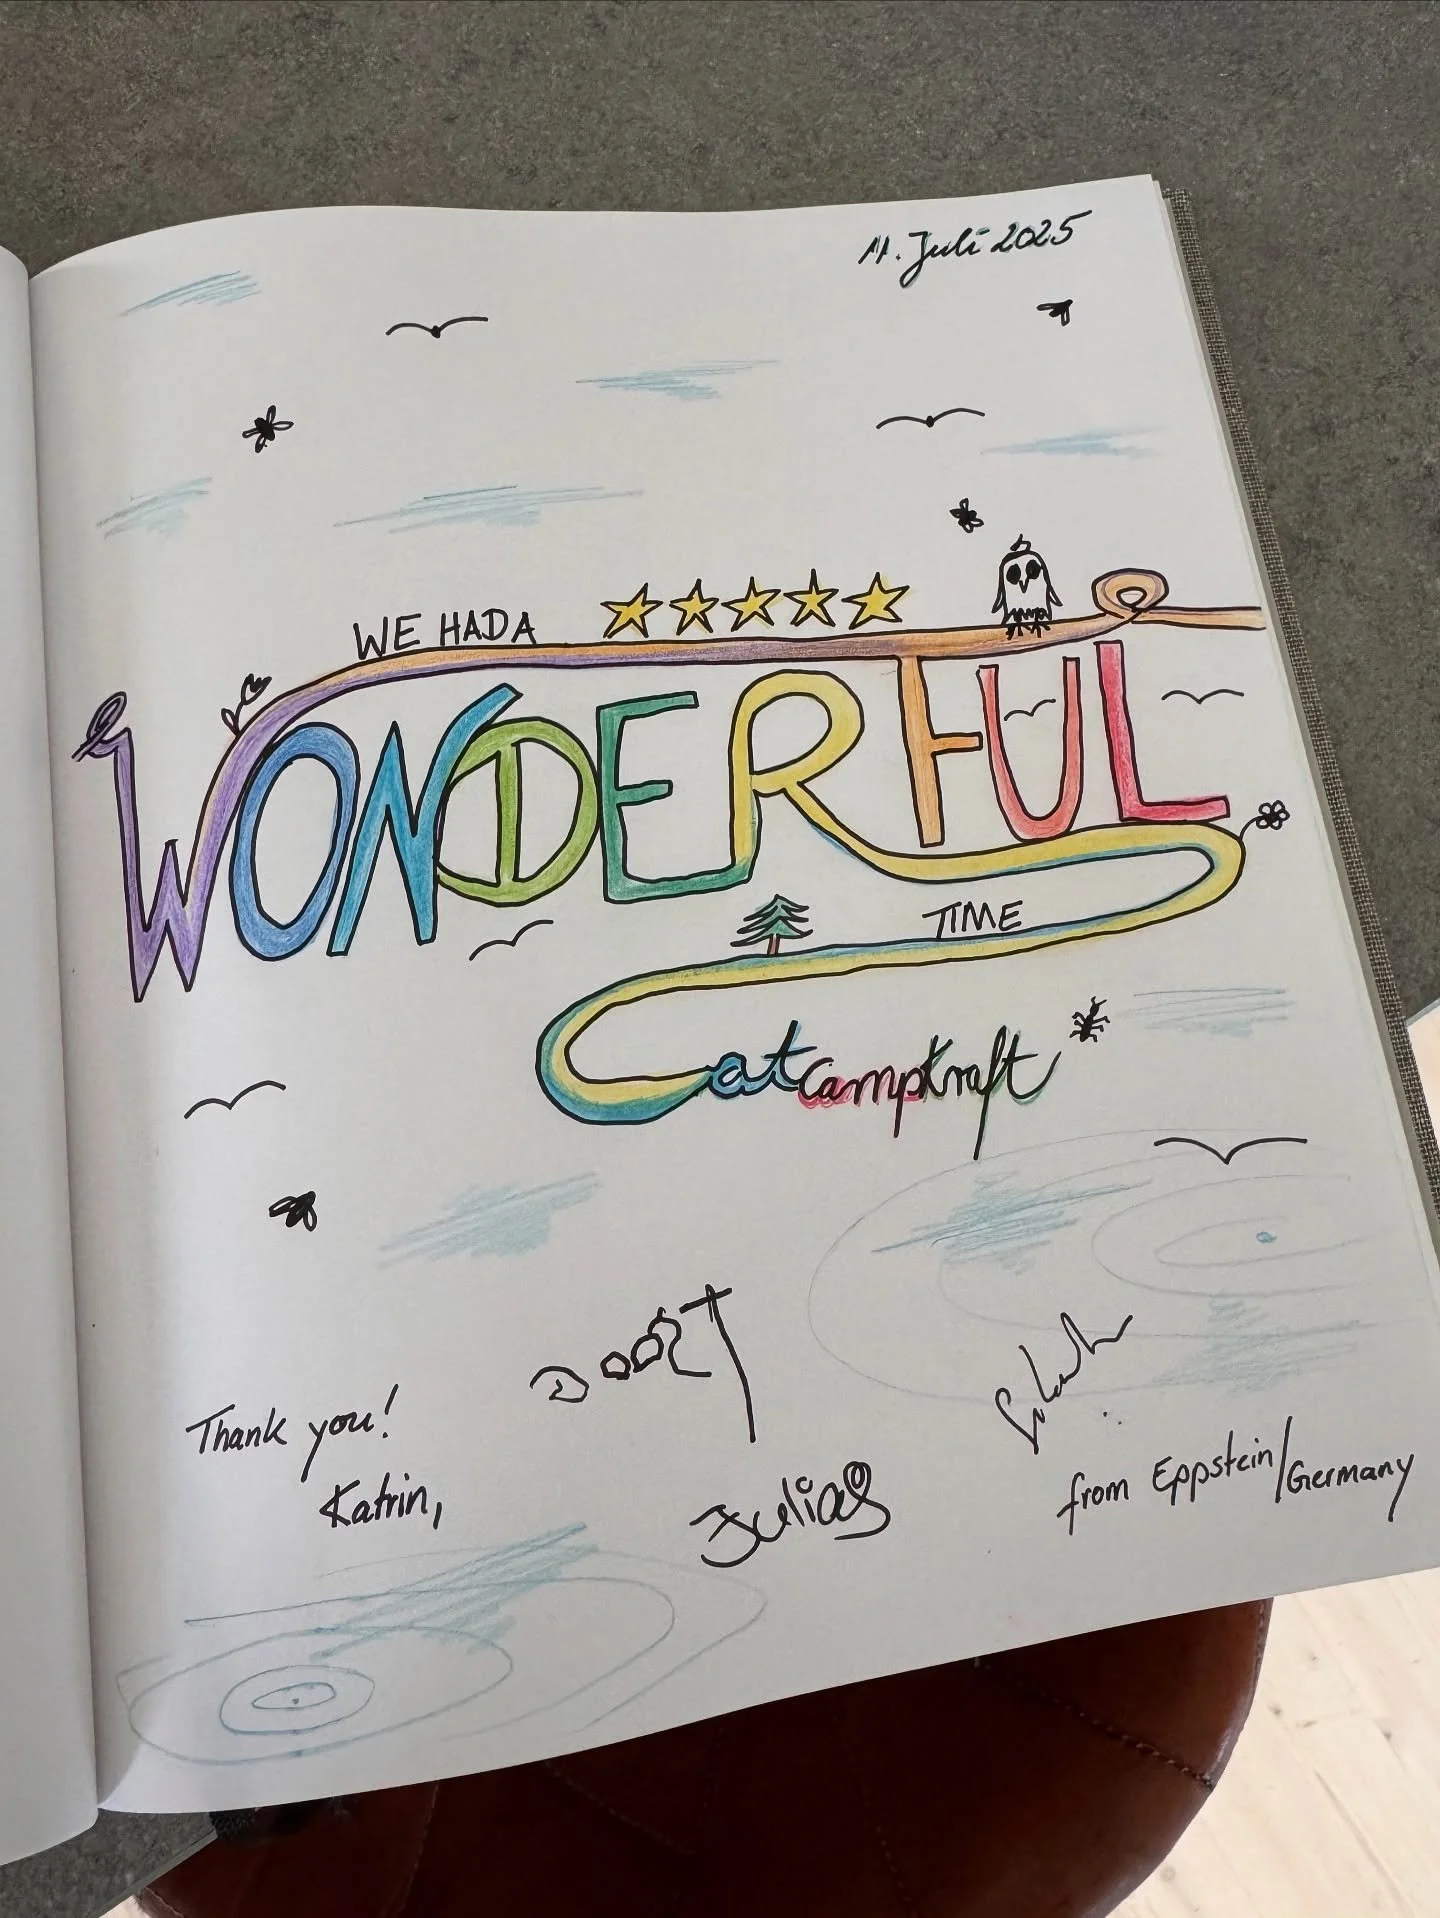 11. Juli 2025
WE HAD A
WONDERFUL
TIME
at campkraft
Thank you!
Katrin,
Julias
from Eppstein/Germany